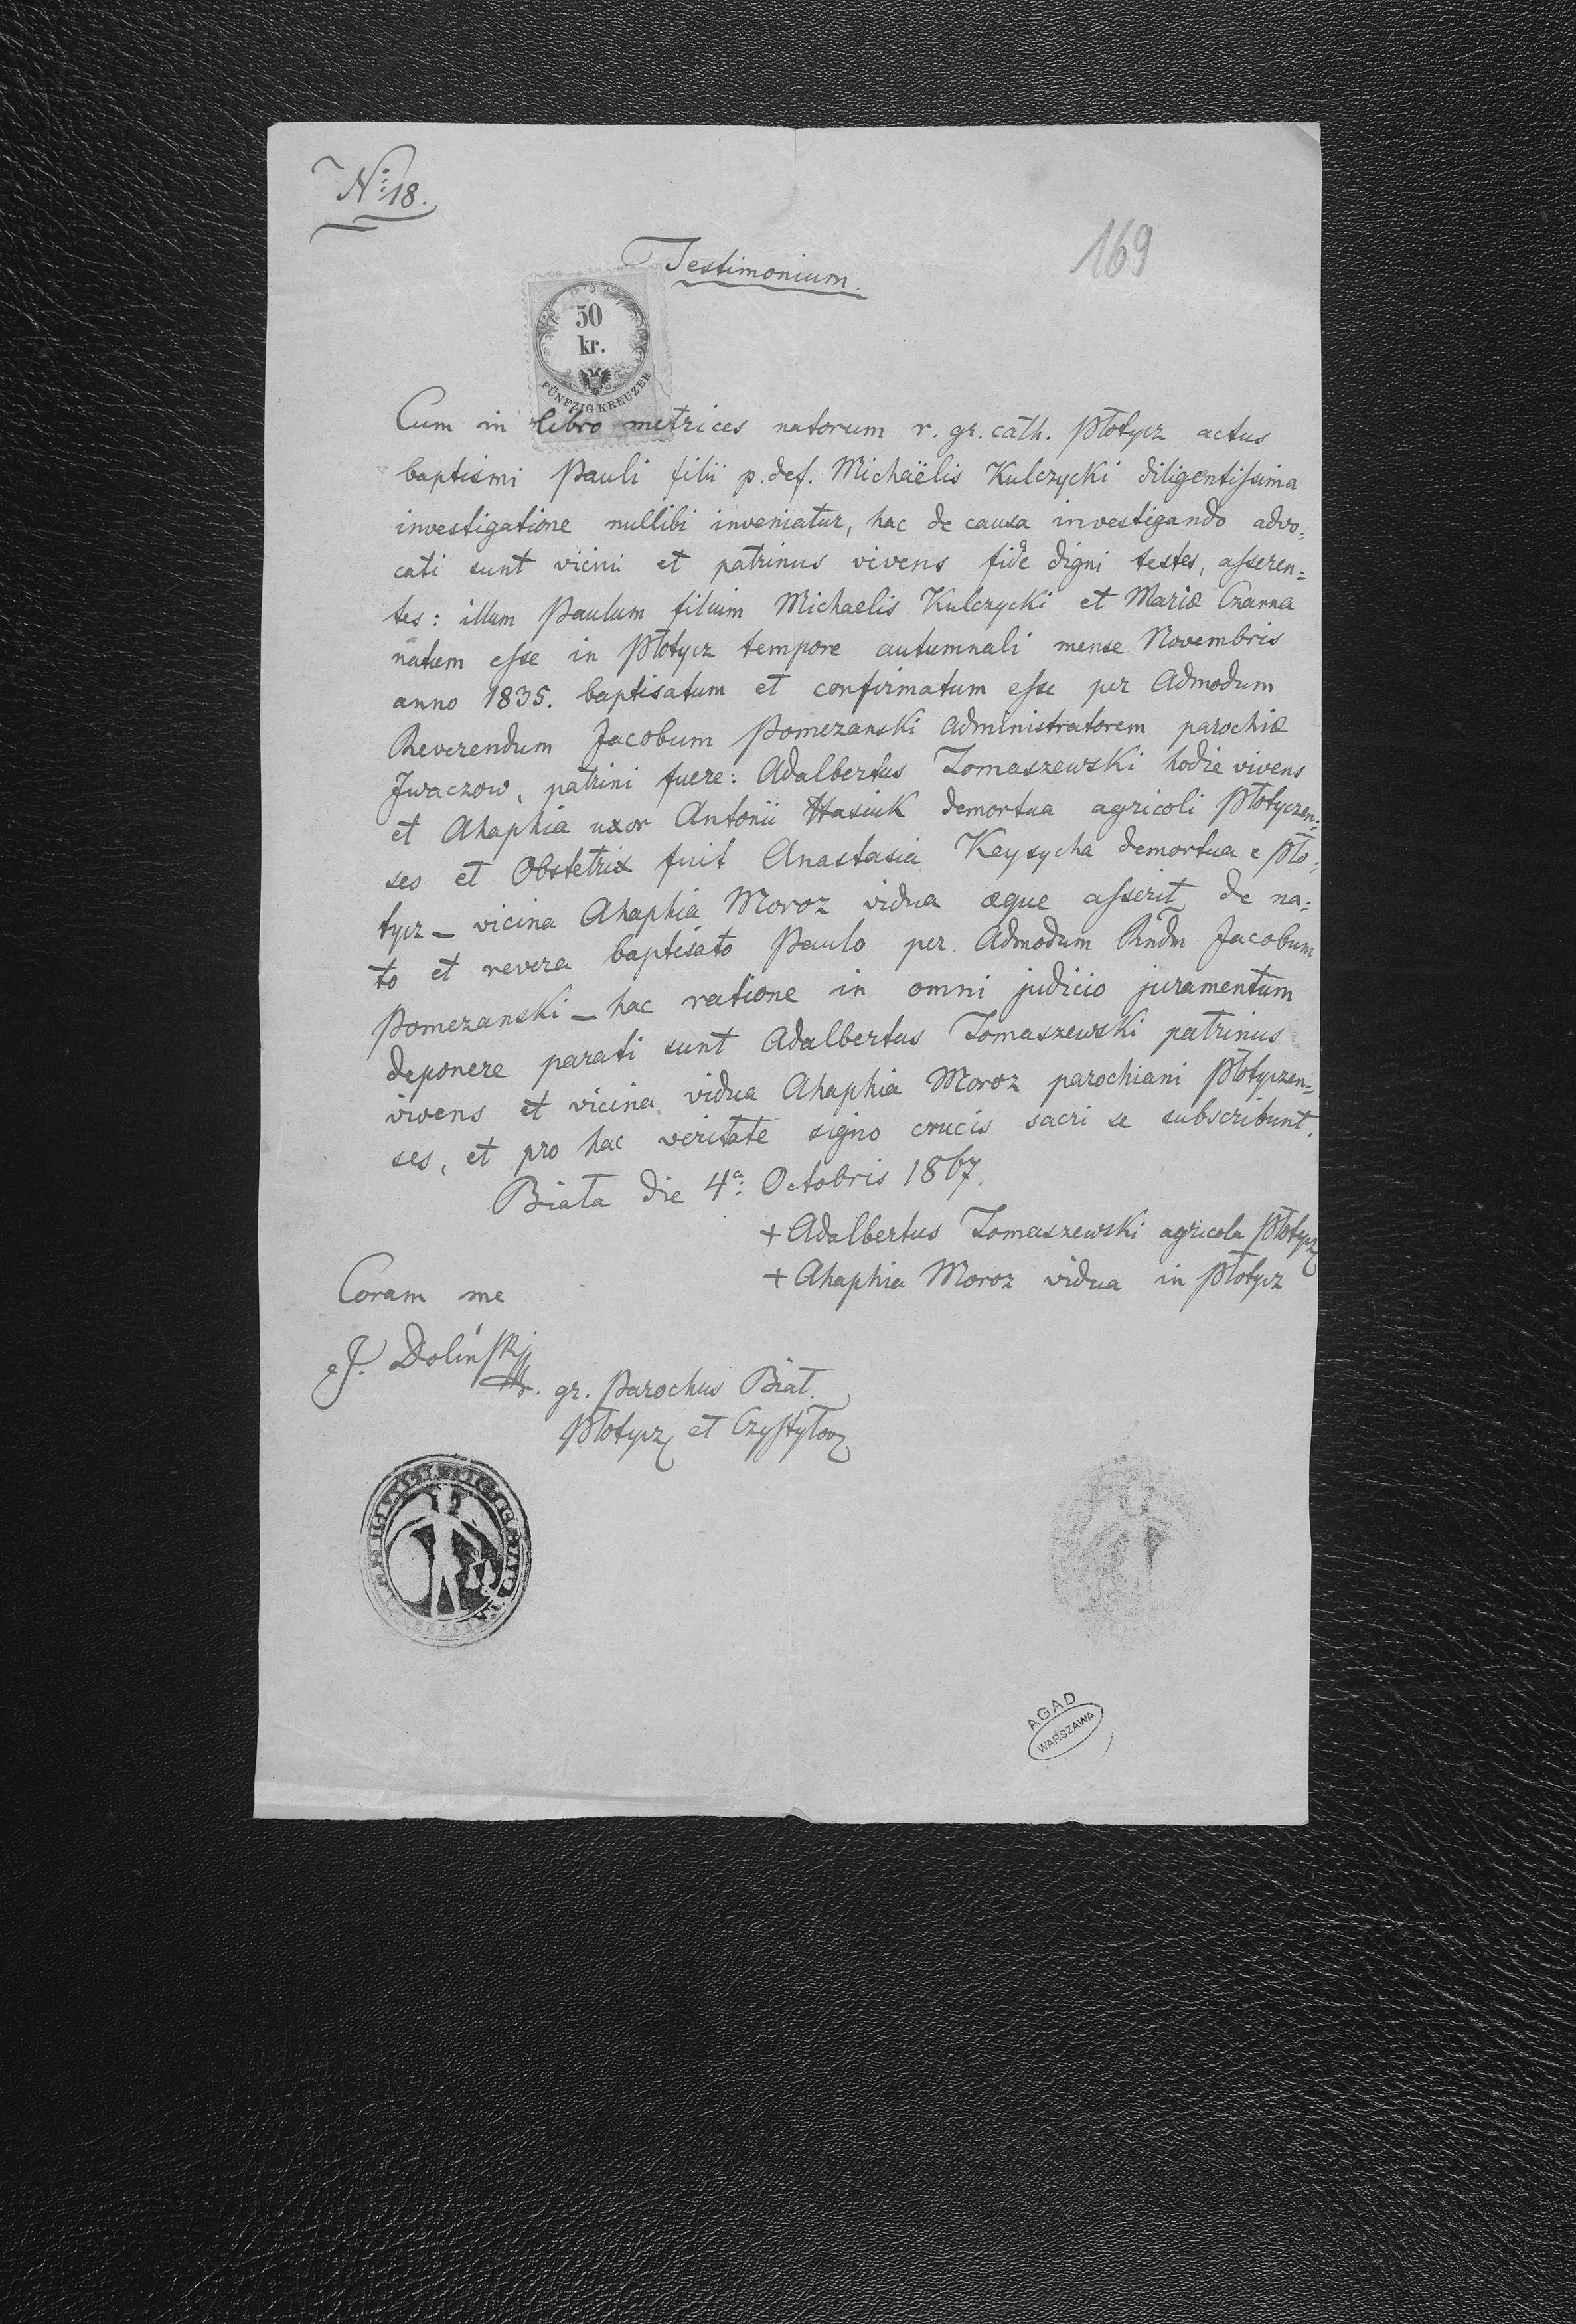 N: 18.
169
Testimonium.
50
kr.
FÜNFZIG KREUZER
Cum in libro metrices natorum r. gr. cath. Płotycz actus
baptismi Pauli filii p. def. Michaëlis Kulczycki diligentissima
investigatione nullibi inveniatur, hac de causa investigando advo=
cati sunt vicini et patrinus vivens fide digni testes, asseren=
tes: illum Paulum filium Michaelis Kulczycki et Mariæ Czarna
natum esse in Płotycz tempore autumnali mense Novembris
anno 1835. baptisatum et confirmatum esse per Admodum
Reverendum Jacobum Pomezanski administratorem parochiæ
Jwaczow, patrini fuere: Adalbertus Tomaszewski hodie vivens
et Ahaphia uxor Antonii Hasiuk demortua agricoli Płotyczen=
ses et Obstetrix fuit Anastasia Keysycha demortua e Pło=
tycz – vicina Ahaphia Moroz vidua æque asserit de na=
to et revera baptisato Paulo per Admodum Rndm Jacobum
Pomezanski – hac ratione in omni judicio juramentum
deponere parati sunt Adalbertus Tomaszewski patrinus
vivens et vicina vidua Ahaphia Moroz parochiani Płotyczen=
ses, et pro hac veritate signo crucis sacri se subscribunt.
Biała die 4a: Octobris 1867.
+ Adalbertus Tomaszewski agricola Płotycz
+ Ahaphia Moroz vidua in Płotycz
Coram me
J. Dolińskj
r. gr. Parochus Biał.
Płotycz et Czystyłow
AGAD
WARSZAWA